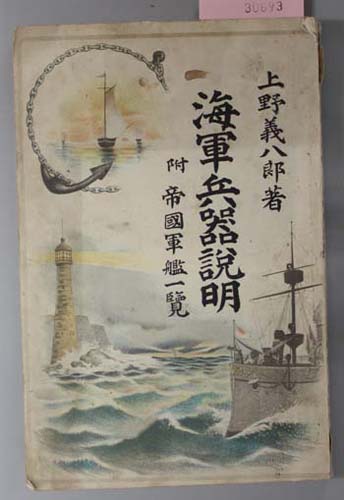 30693
上野義八郎著
海軍兵器説明
附 帝國軍艦一覽